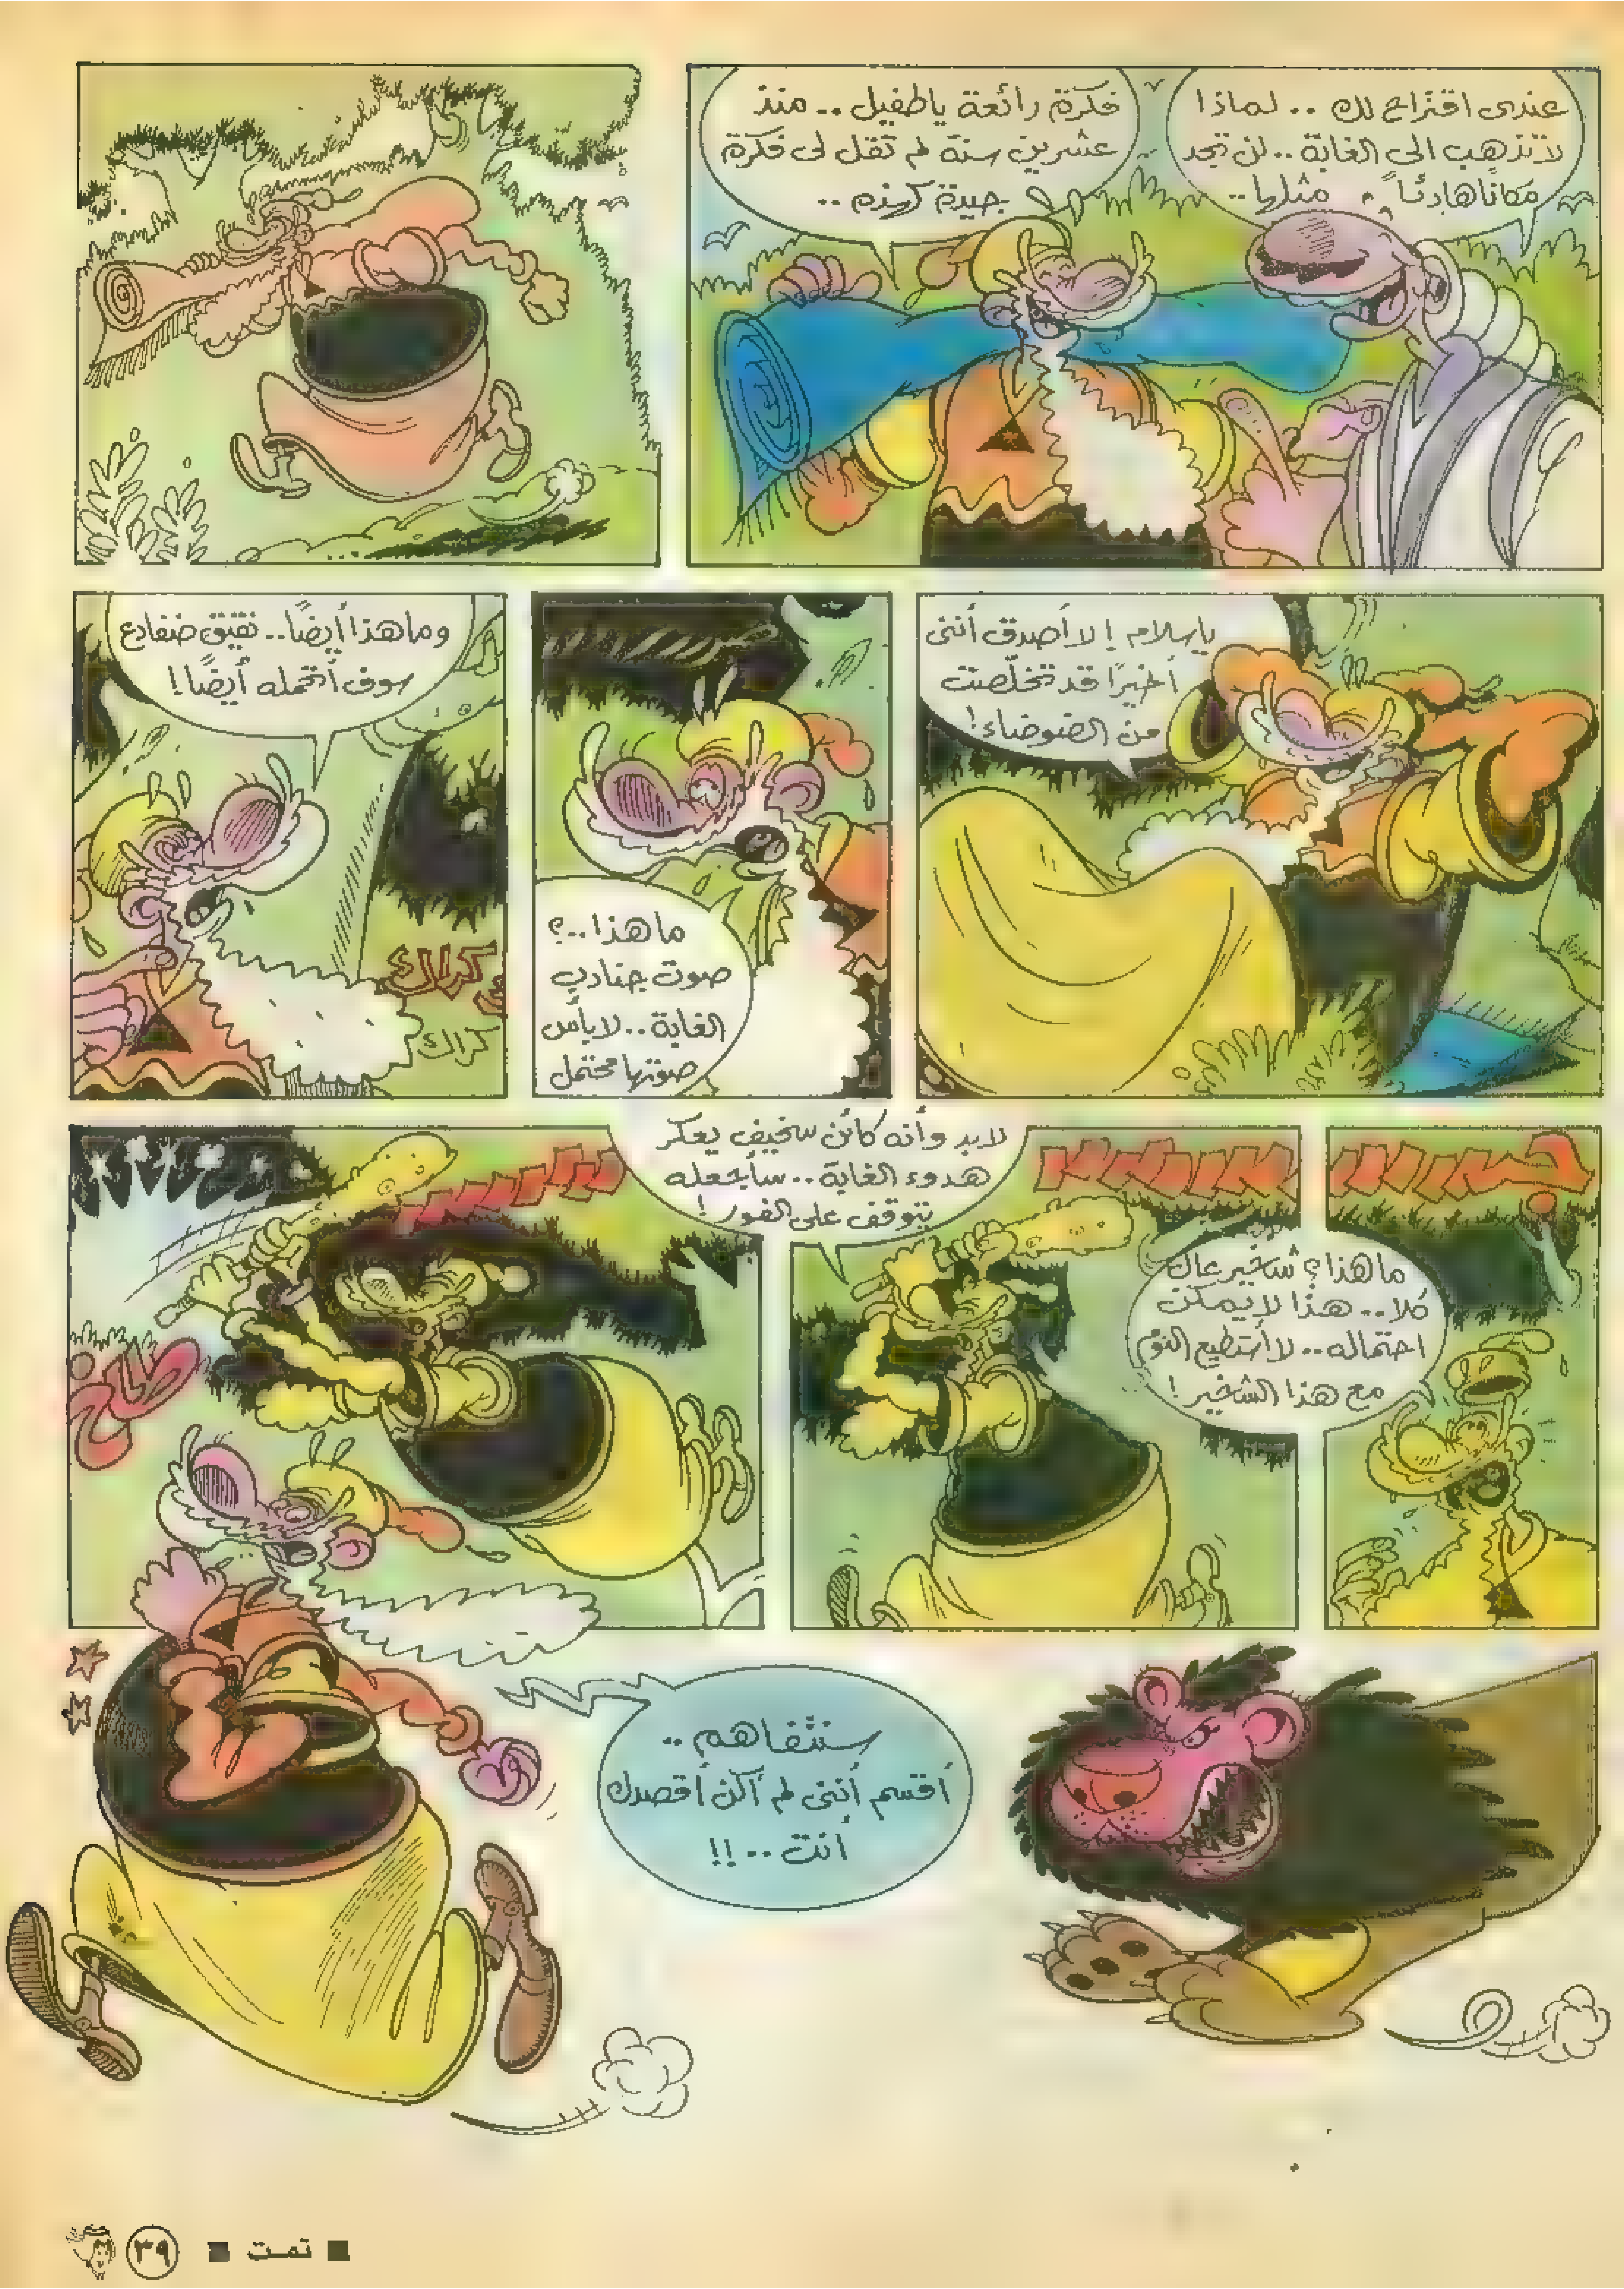 عندى اقتراح لك .. لماذا
لا تذهب الى الغابة .. لن تجد
مكاناً هادئاً مثلها ..
فكرة رائعة ياطفيل .. منذ
عشرين سنة لم تقل لى فكرة
جيدة كهذه ..
ياسلام ! لا أصدق أننى
أخيرًا قد تخلّصت
من الضوضاء !
ما هذا ..؟
صوت جنادب
الغابة .. لا بأس
صوتها محتمل
وما هذا أيضاً .. نقيق ضفادع
سوف أتحمله أيضًا !
كراك
كراك
ما هذا ؟ شخير عال
كلا .. هذا لا يمكن
احتماله .. لا أستطيع النوم
مع هذا الشخير !
لابد وأنه كائن سخيف يعكر
هدوء الغابة .. سأجعله
يتوقف على الفور !
سنتفاهم ..
أقسم أننى لم أكن أقصدك
أنت .. !!
■ تمت ■ ٣٩